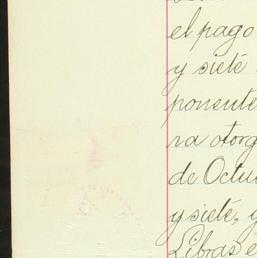 el pago
y sieté
ponente
ra otorg
de Octu
y sieté, y
Libras e